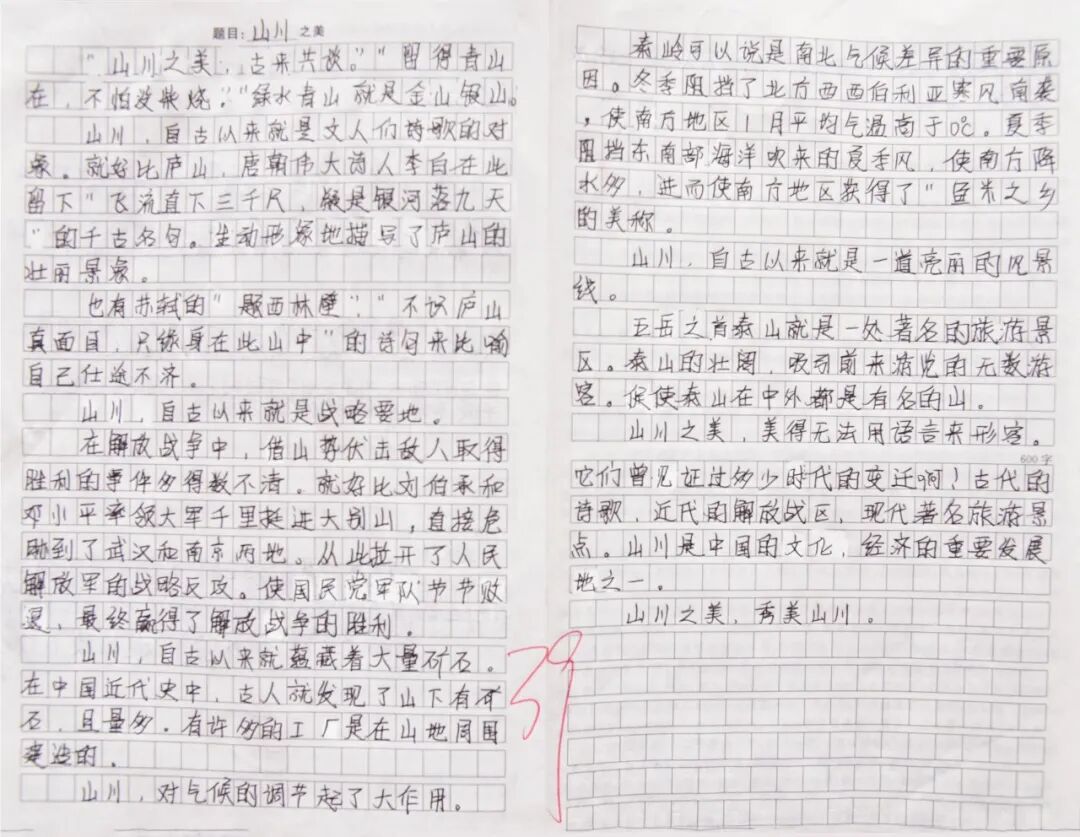 题目：山川之美
“山川之美，古来共谈。”“留得青山
在，不怕没柴烧。”“绿水青山就是金山银山。
山川，自古以来就是文人们诗歌的对
象。就好比庐山，唐朝伟大诗人李白在此
留下“飞流直下三千尺，疑是银河落九天
”的千古名句。生动形象地描写了庐山的
壮丽景象。
也有苏轼的“题西林壁”，“不识庐山
真面目，只缘身在此山中”的诗句来比喻
自己仕途不济。
山川，自古以来就是战略要地。
在解放战争中，借山势伏击敌人取得
胜利的事件多得数不清。就好比刘伯承和
邓小平率领大军千里挺进大别山，直接危
胁到了武汉和南京两地。从此拉开了人民
解放军的战略反攻。使国民党军队节节败
退，最终赢得了解放战争的胜利。
山川，自古以来就蕴藏着大量矿石。
在中国近代史中，古人就发现了山下有矿
石，且量多。有许多的工厂是在山地周围
建造的。
山川，对气候的调节起了大作用。
秦岭可以说是南北气候差异的重要原
因。冬季阻挡了北方西西伯利亚寒风南袭
，使南方地区1月平均气温高于0℃。夏季
阻挡东南部海洋吹来的夏季风，使南方降
水多，进而使南方地区获得了“鱼米之乡
的美称。
山川，自古以来就是一道亮丽的风景
线。
五岳之首泰山就是一处著名的旅游景
区。泰山的壮阔，吸引前来游览的无数游
客。促使泰山在中外都是有名的山。
山川之美，美得无法用语言来形容。
600字
它们曾见证过多少时代的变迁啊！古代的
诗歌，近代的解放战区，现代著名旅游景
点。山川是中国的文化，经济的重要发展
地之一。
山川之美，秀美山川。
39